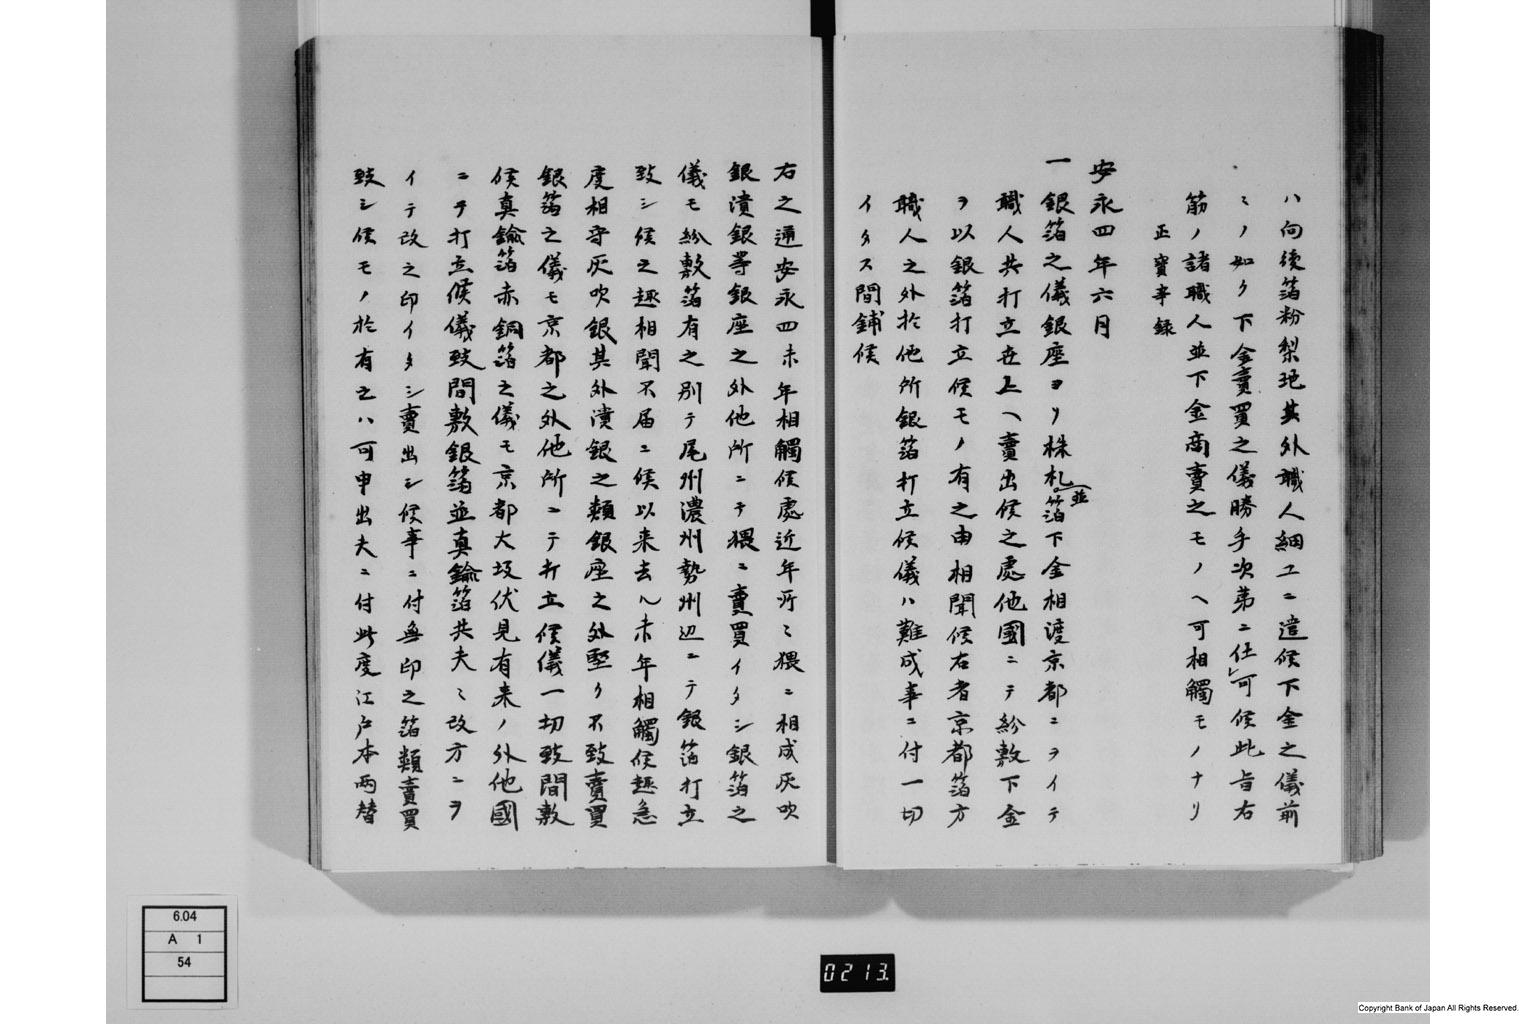 ハ向後箔粉梨地其外職人細工ニ遣候下金之儀前
ミノ如ク下金賣買之儀勝手次第ニ仕可候此旨右
筋ノ諸職人並下金商賣之モノヘ可相觸モノナリ
正寳事録
安永四年六月
一銀箔之儀銀座ヨリ株札並箔下金相渡京都ニヲイテ
職人共打立世上ヘ賣出候之處他國ニテ紛敷下金
ヲ以銀箔打立候モノ有之由相聞候右者京都箔方
職人之外於他所銀箔打立候儀ハ難成事ニ付一切
イタス間鋪候
右之通安永四未年相觸候處近年所ミ猥ニ相成灰吹
銀潰銀等銀座之外他所ニテ猥ニ賣買イタシ銀箔之
儀モ紛敷箔有之別テ尾州濃州勢州辺ニテ銀箔打立
致シ候之趣相聞不届ニ候以来去ル未年相觸候趣急
度相守灰吹銀其外潰銀之類銀座之外堅ク不致賣買
銀箔之儀モ京都之外他所ニテ打立候儀一切致間敷
候真鍮箔赤銅箔之儀モ京都大坂伏見有来ノ外他國
ニテ打立候儀致間敷銀箔並真鍮箔共夫ミ改方ニヲ
イテ改之印イタシ賣出シ候事ニ付無印之箔類賣買
致シ候モノ於有之ハ可申出夫ニ付此度江戸本両替
6.04
A 1
54
0213.
Copyright Bank of Japan All Rights Reserved.